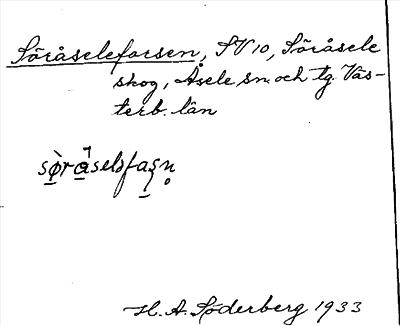 Söråseleforsen, SV 10, Söråsele
skog, Åsele sn. och tg. Väs-
terb. län
H. A. Söderberg 1933